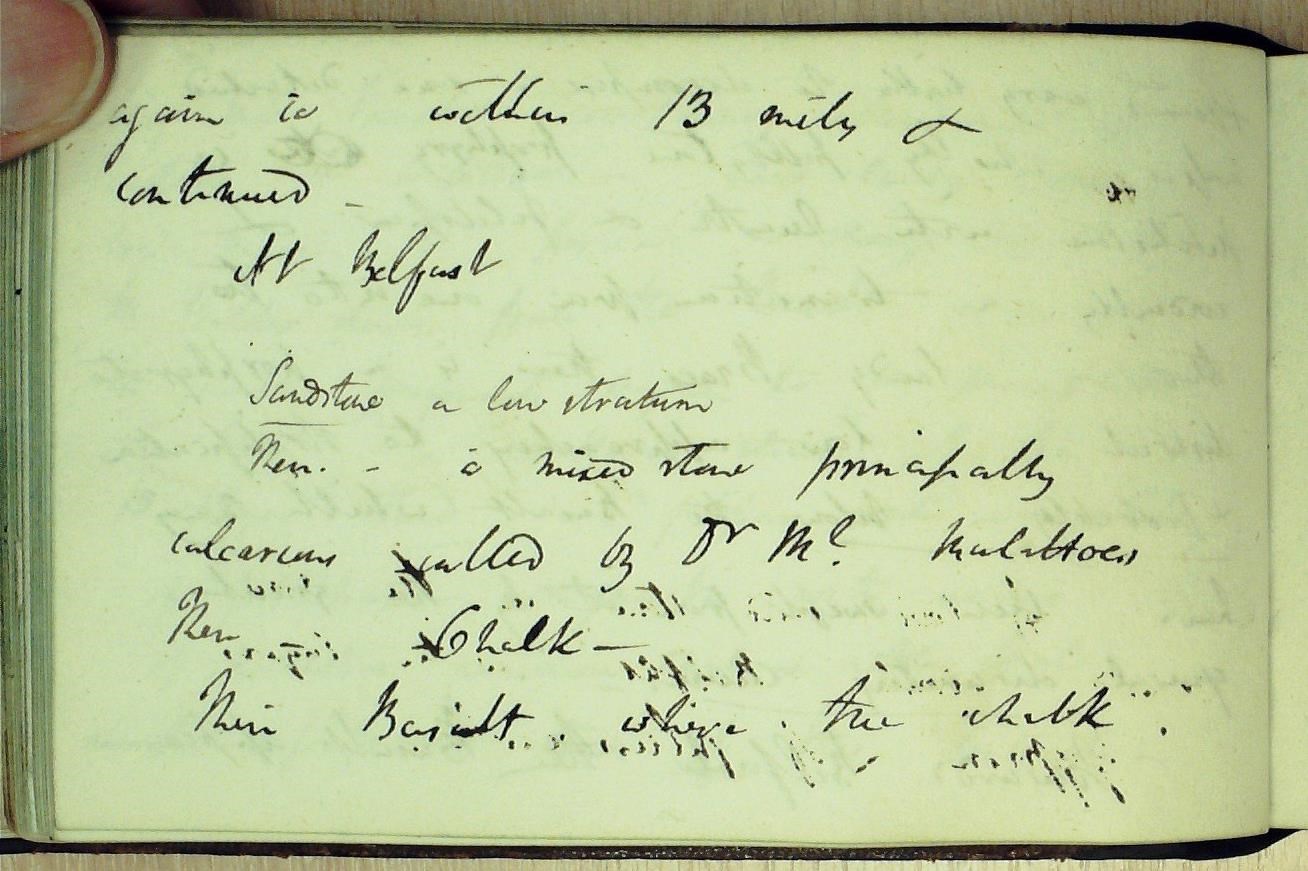 again to within 13 miles &
continued –
At Belfast
Sandstone a low stratum
Then. – a mixed stone principally
calcareous called by Dr Mc.
Then Chalk –
Then Basalt. where the chalk.